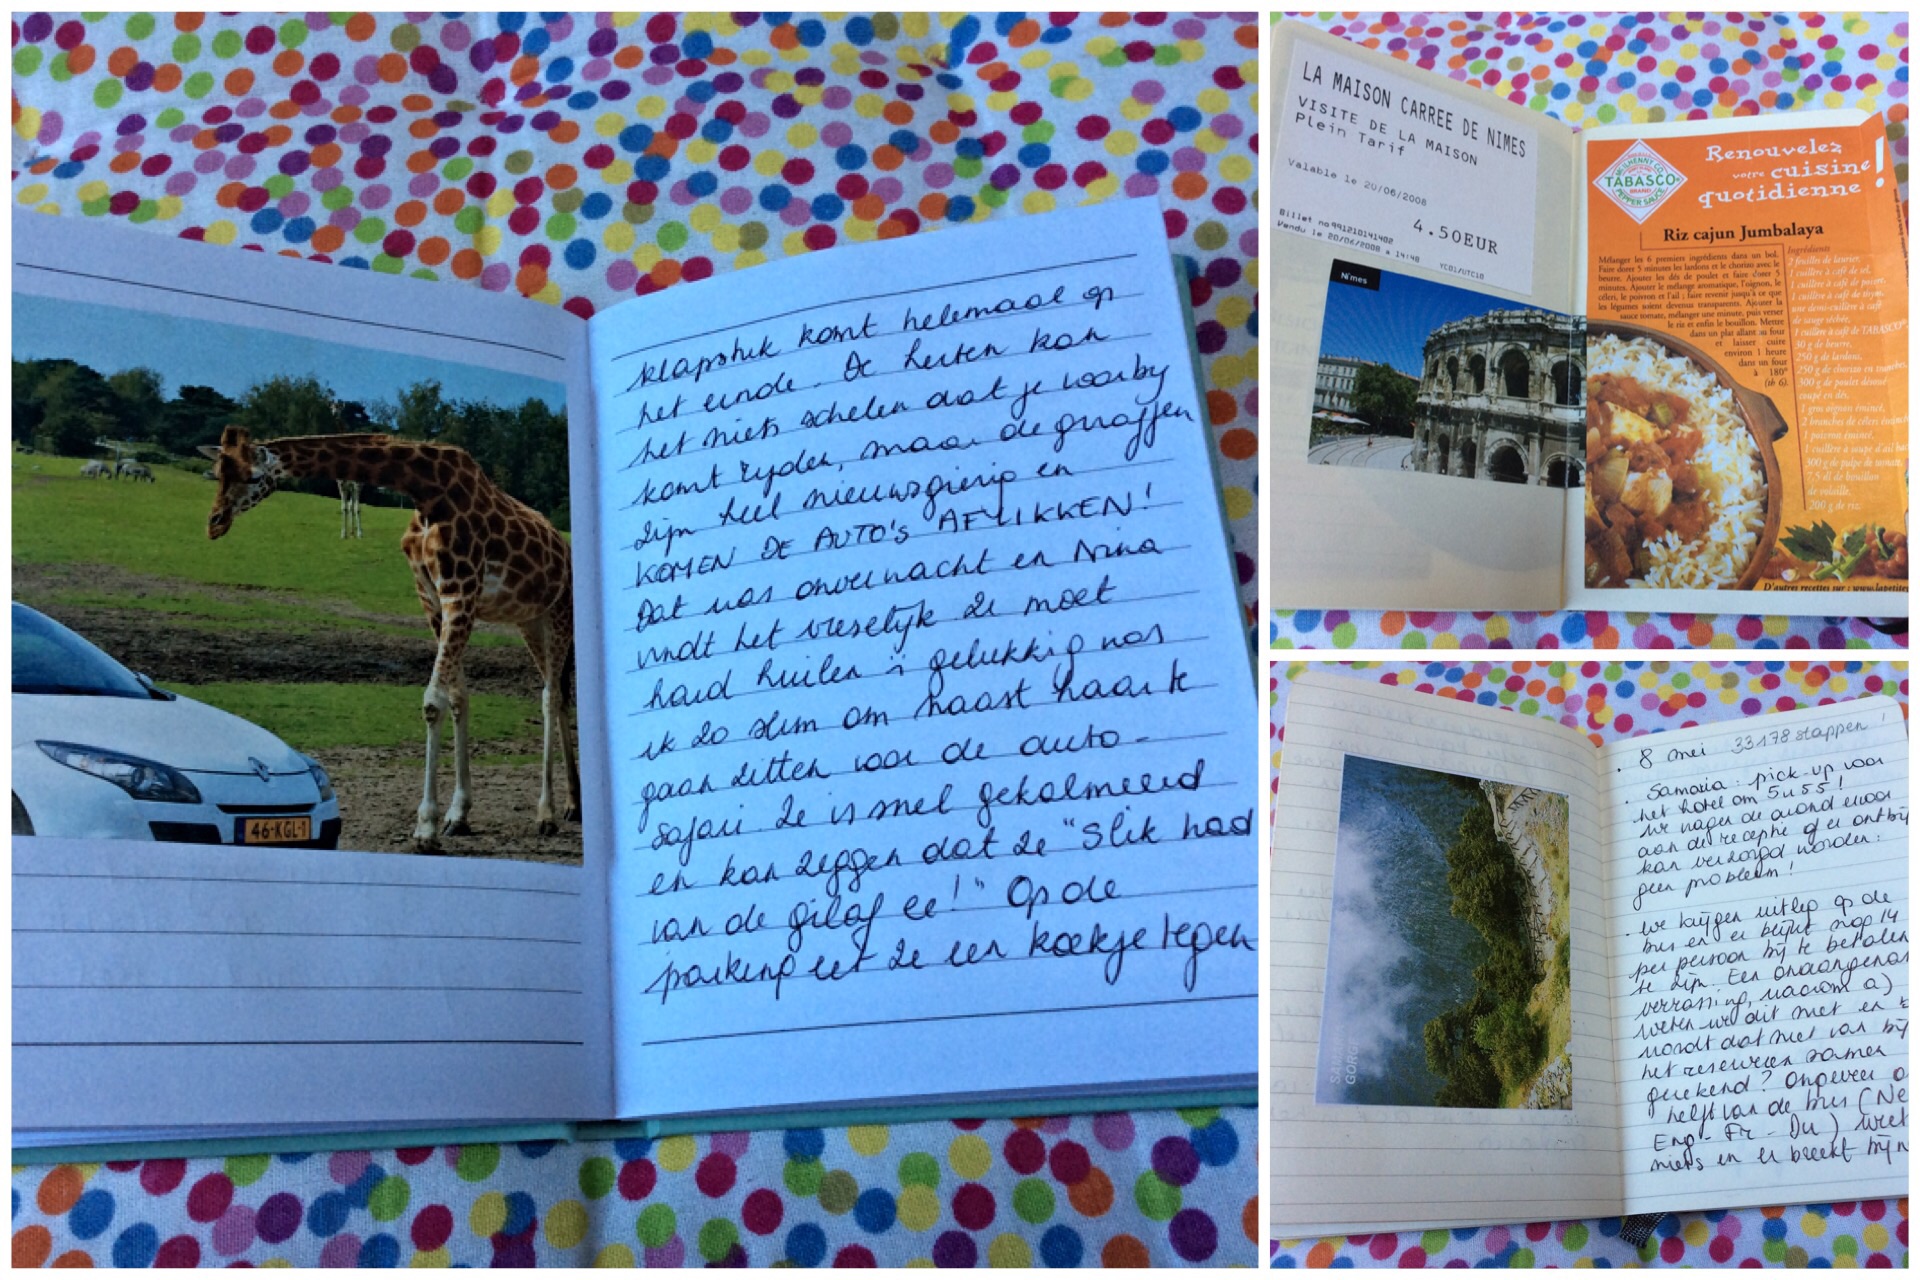 46-KGL-1
klapstuk komt helemaal op
het einde. De herten kan
het niets schelen dat je voorbij
komt rijden, maar de giraffen
zijn heel nieuwsgierig en
KOMEN DE AUTO'S AFLIKKEN!
Dat was onverwacht en Nina
vindt het vreselijk ze moet
hard huilen :( gelukkig was
ik zo slim om naast haar te
gaan zitten voor de auto-
safari. Ze is snel gekalmeerd
en kan zeggen dat ze "slik had
van de gilaf ee!" Op de
parking eet ze een koekje tegen
LA MAISON CARREE DE NIMES
VISITE DE LA MAISON
Plein Tarif
Valable le 20/06/2008
4.50EUR
Billet no991210141402
Vendu le 20/06/2008 a 14:48 YC01/UTC10
Nîmes
McILHENNY CO.
TABASCO
BRAND
PEPPER SAUCE
Renouvelez
votre cuisine
quotidienne !
Riz cajun Jumbalaya
Mélanger les 6 premiers ingrédients dans un bol.
Faire dorer 5 minutes les lardons et le chorizo avec le
beurre. Ajouter les dés de poulet et faire dorer 5
minutes. Ajouter le mélange aromatique, l'oignon, le
céleri, le poivron et l'ail ; faire revenir jusqu'à ce que
les légumes soient devenus transparents. Ajouter la
sauce tomate, mélanger une minute, puis verser
le riz et enfin le bouillon. Mettre
dans un plat allant au four
et laisser cuire
environ 1 heure
dans un four
à 180°
(th 6).
Ingrédients
2 feuilles de laurier,
1 cuillère à café de sel,
1 cuillère à café de poivre,
1 cuillère à café de thym,
une demi-cuillère à café
de sauge séchée,
1 cuillère à café de TABASCO®
30 g de beurre,
250 g de lardons,
250 g de chorizo en tranches,
300 g de poulet désossé
coupé en dés,
1 gros oignon émincé,
2 branches de céleri émincé
1 poivron émincé,
1 cuillère à soupe d'ail
300 g de pulpe de tomate,
7,5 dl de bouillon
de volaille,
200 g de riz.
D'autres recettes sur : www.lapetite
GORG
. 8 mei 33178 stappen !
. Samaria : pick-up voor
het hotel om 5u55!
We vragen de avond ervoor
aan de receptie of er ontbij
kan verzorgd worden:
geen probleem!
. We krijgen uitleg op de
bus en er blijkt nog 14
per persoon bij te betalen
te zijn. Een onaangena
verrassing, waarom a)
weten we dit niet en
wordt dat niet van bij
het reserveren samen
gerekend? Ongeveer
helft van de bus (Ne
Eng - Fr - Du) weet
niets en er breekt bijn